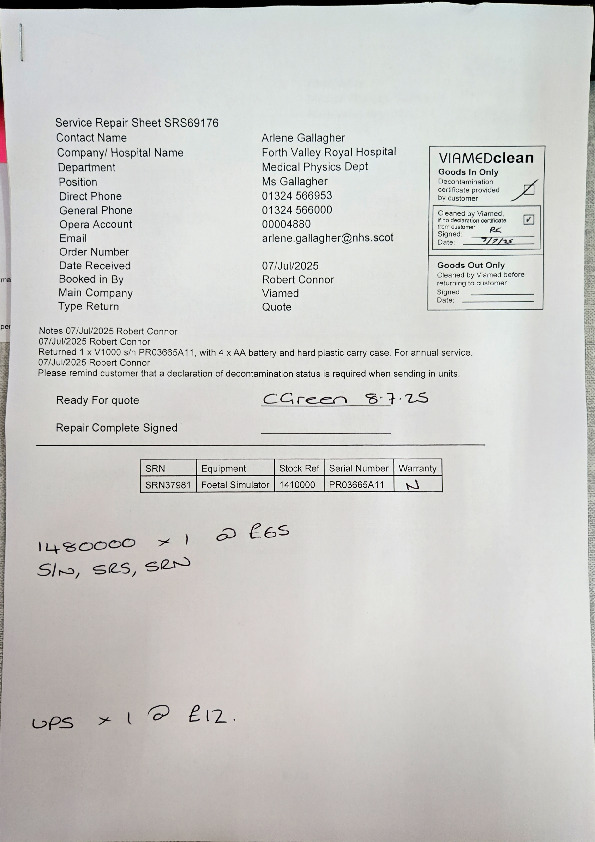 Service Repair Sheet SRS69176
Contact Name Arlene Gallagher
Company/ Hospital Name Forth Valley Royal Hospital
Department Medical Physics Dept
Position Ms Gallagher
Direct Phone 01324 566953
General Phone 01324 566000
Opera Account 00004880
Email arlene.gallagher@nhs.scot
Order Number
Date Received 07/Jul/2025
Booked in By Robert Connor
Main Company Viamed
Type Return Quote
VIAMEDclean
Goods In Only
Decontamination
certificate provided
by customer
Cleaned by Viamed,
if no declaration certificate
from customer
Signed: RC
Date: 7/7/25
Goods Out Only
Cleaned by Viamed before
returning to customer
Signed
Date:
Notes 07/Jul/2025 Robert Connor
07/Jul/2025 Robert Connor
Returned 1 x V1000 s/n PR03665A11, with 4 x AA battery and hard plastic carry case. For annual service.
07/Jul/2025 Robert Connor
Please remind customer that a declaration of decontamination status is required when sending in units.
Ready For quote CGreen 8.7.25
Repair Complete Signed
SRN Equipment Stock Ref Serial Number Warranty
SRN37981 Foetal Simulator 1410000 PR03665A11 N
1480000 x 1 @ £65
S/N, SRS, SRN
UPS x 1 @ £12.